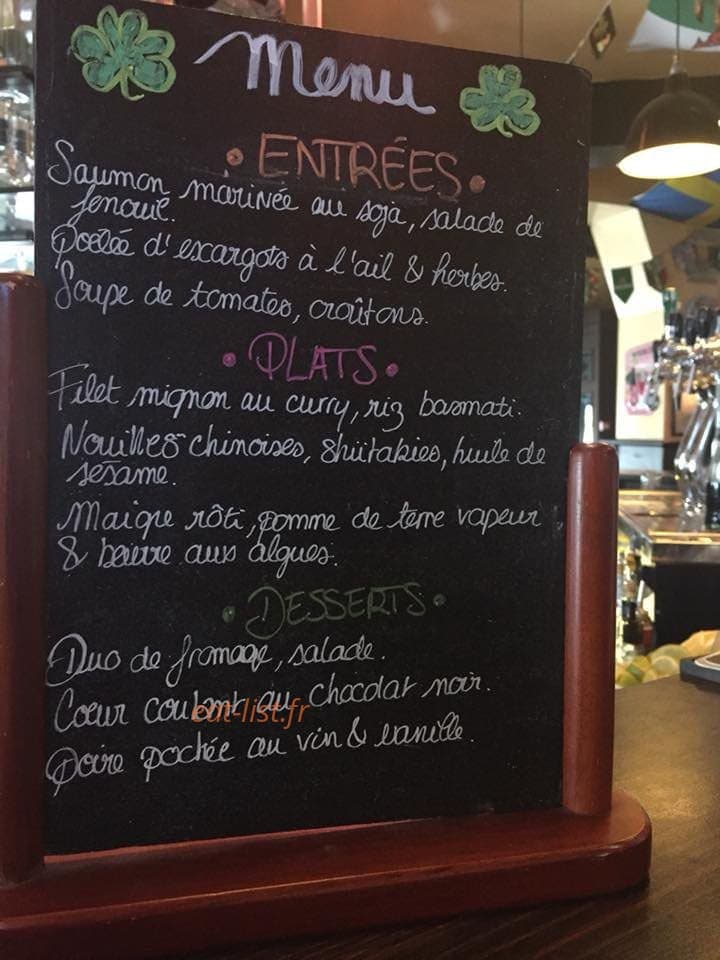 Menu
• ENTRÉES •
Saumon marinée au soja, salade de
fenouil.
Poêlée d'escargots à l'ail & herbes.
Soupe de tomates, croûtons.
• PLATS •
Filet mignon au curry, riz basmati.
Nouilles chinoises, shiitakies, huile de
sésame.
Maigre rôti, pomme de terre vapeur
& beurre aux algues.
• DESSERTS •
Duo de fromage, salade.
Cœur coulant au chocolat noir.
eat-list.fr
Poire pochée au vin & vanille.